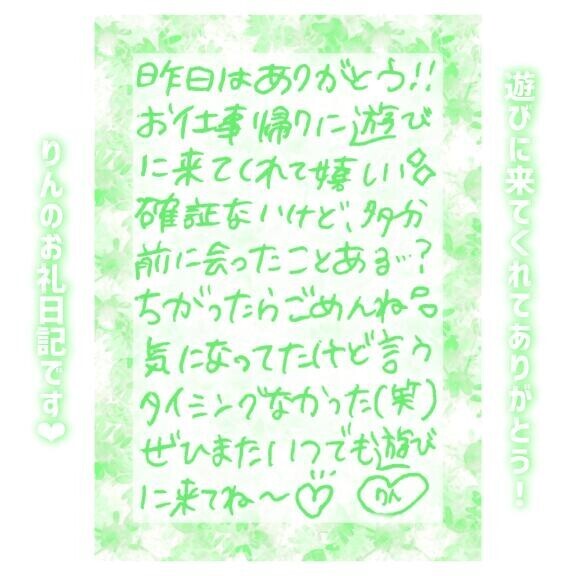 遊びに来てくれてありがとう!
昨日はありがとう!!
お仕事帰りに遊び
に来てくれて嬉しい
確証ないけど、多分
前に会ったことある…?
ちがったらごめんね
気になってたけど言う
タイミングなかった(笑)
ぜひまたいつでも遊び
に来てね〜♡
りん
りんのお礼日記です❤